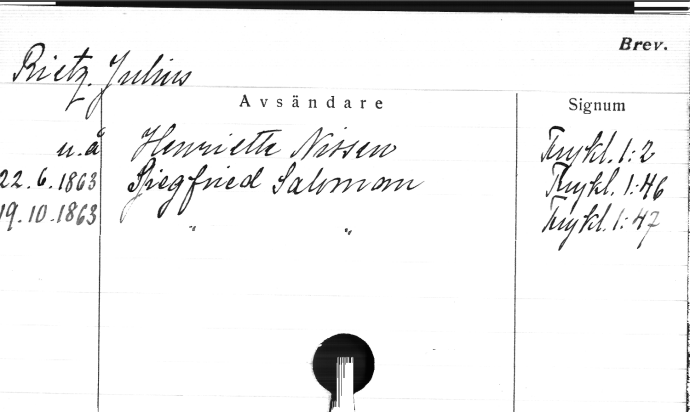 Brev.
Rietz. Julius
Avsändare Signum
u.å Henriette Nissen Frykl. 1:2
22.6.1863 Siegfried Saloman Frykl. 1:46
19.10.1863 " " Frykl. 1:47